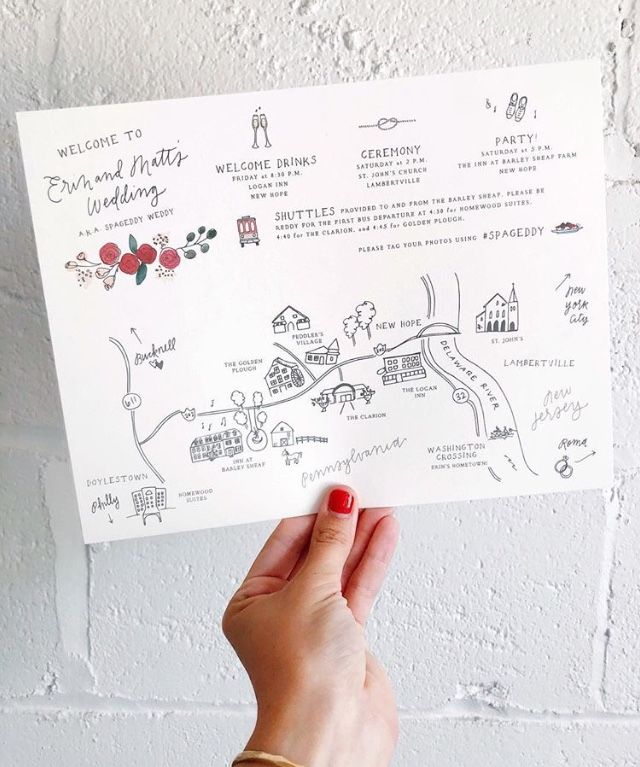 WELCOME TO
Erin and Matt's
Wedding
A.K.A. SPAGEDDY WEDDY
WELCOME DRINKS
FRIDAY at 8:30 P.M.
LOGAN INN
NEW HOPE
CEREMONY
SATURDAY at 2 P.M.
ST. JOHN'S CHURCH
LAMBERTVILLE
PARTY!
SATURDAY at 5 P.M.
THE INN AT BARLEY SHEAF FARM
NEW HOPE
SHUTTLES PROVIDED TO AND FROM THE BARLEY SHEAF. PLEASE BE
REDDY FOR THE FIRST BUS DEPARTURE AT 4:30 for HOMEWOOD SUITES,
4:40 for THE CLARION, and 4:45 for GOLDEN PLOUGH.
PLEASE TAG YOUR PHOTOS USING #SPAGEDDY
New
York
City
Bucknell
PEDDLER'S
VILLAGE
NEW HOPE
ST. JOHN'S
THE GOLDEN
PLOUGH
202
DELAWARE RIVER
LAMBERTVILLE
THE LOGAN
INN
611
202
THE CLARION
32
New
Jersey
INN AT
BARLEY SHEAF
Pennsylvania
WASHINGTON
CROSSING
ERIN'S HOMETOWN!
Roma
DOYLESTOWN
Philly
HOMEWOOD
SUITES